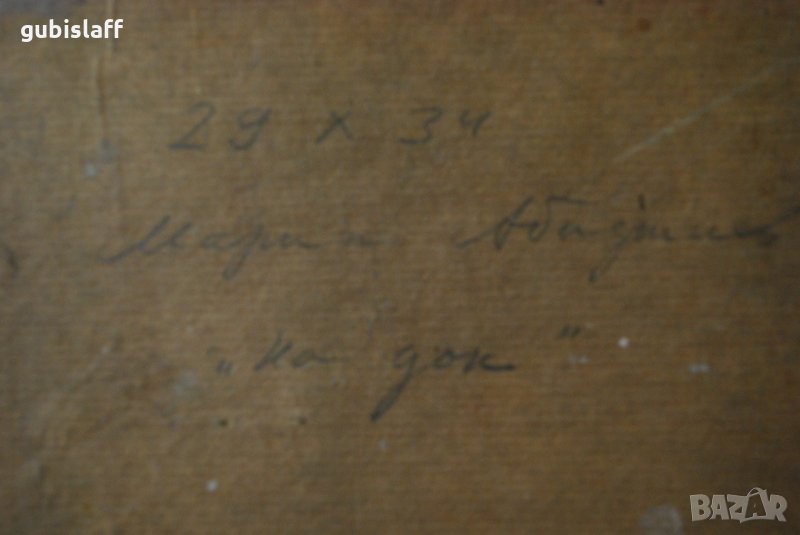 gubislaff
29 x 34
Марин Абаджиев
„На док"
BAZAR